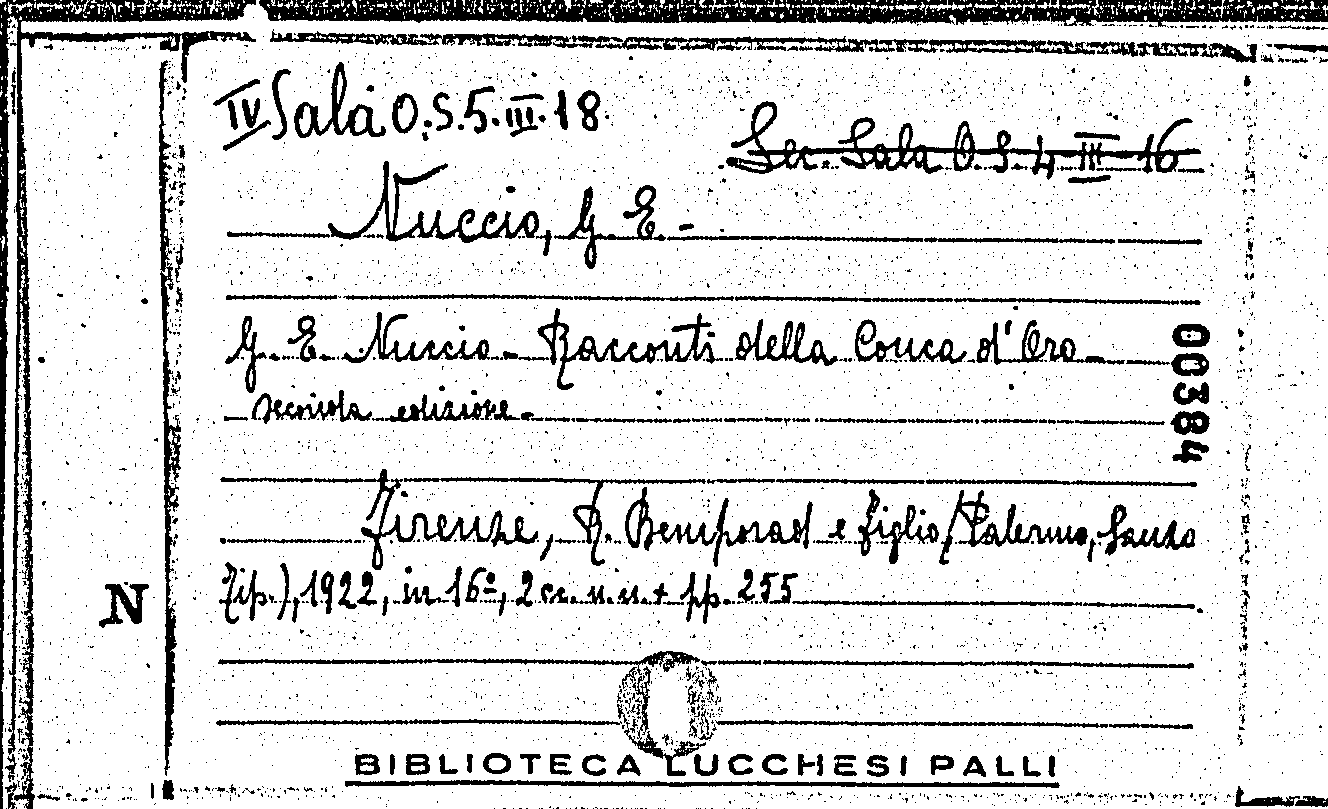 IV Sala O.S.5.III.18
Sec. Sala O.S.4 III 16
Nuccio, G. E. -
G. E. Nuccio - Racconti della Conca d'Oro -
seconda edizione -
00384
Firenze, R. Bemporad e figlio (Palermo, Sanzo
Tip.), 1922, in 16º, 2 cc. n.n. + pp. 255
N
BIBLIOTECA LUCCHESI PALLI